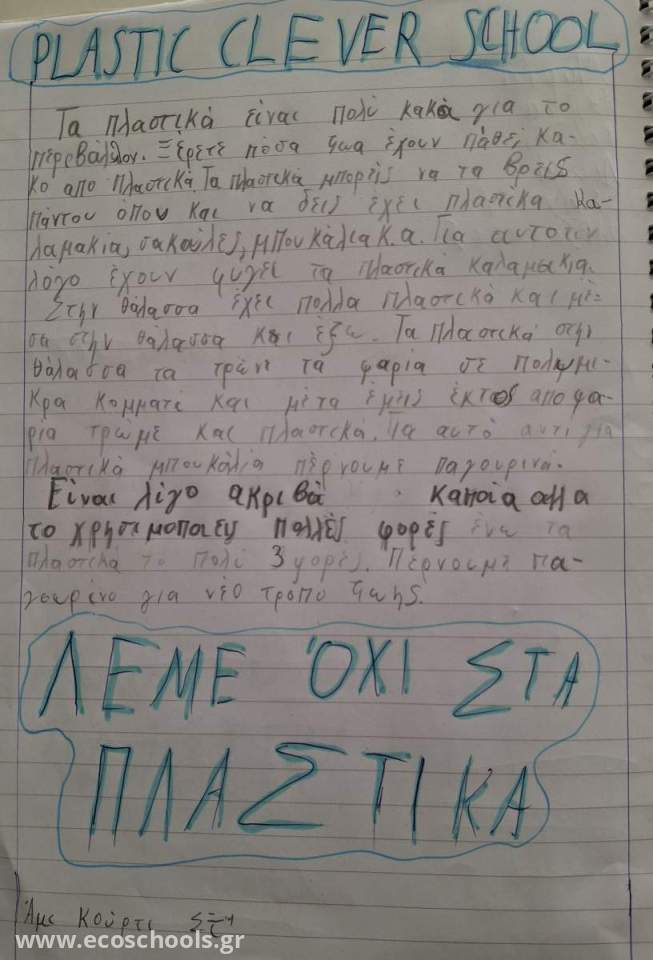 PLASTIC CLEVER SCHOOL
Τα πλαστικά είναι πολύ κακά για το
περεβάλλον. Ξέρετε πόσα ζωα έχουν πάθει κα-
κο απο πλαστικά. Τα πλαστικά μπορείς να τα βρεις
πάντου όπου και να δεις έχει πλαστικά κα-
λαμακια, σακούλες, μπουκάλια κ.α. Για αυτον τον
λόγο έχουν φύγει τα πλαστικά καλαμακια.
Στην θάλασσα έχει πολλα πλαστικά και μέ-
σα στην θάλασσα και έξω. Τα πλαστικά στην
θάλασσα τα τρώνε τα ψαρία σε πολυ μι-
κρα κομματι και μέτα έμεις έκτος απο ψα-
ρία τρώμε και πλαστικά. Για αυτό αντι για
πλαστικά μπουκάλια πέρνουμε παγουρινά.
Είναι λίγο ακριβά καποία αλλα
το χρησιμοποιεις πολλές φορές ένω τα
πλαστικά το πολύ 3 φορές. Πέρνουμε πα-
γουρίνο για νέο τρόπο ζωής.
ΛΕΜΕ ΌΧΙ ΣΤΑ
ΠΛΑΣΤΙΚΑ
Κούρτι
www.ecoschools.gr